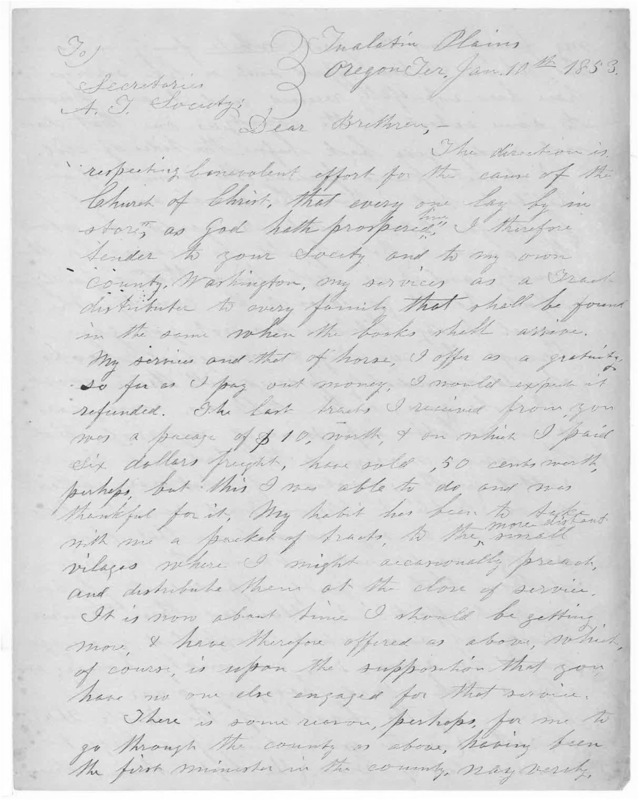 To
Tualatin Plains
Oregon Ter, Jan. 10th 1853.
Secretaries
A. T. Society;
Dear Brethren,-
The direction is
respecting benevolent effort for the cause of the
Church of Christ, that every one lay by in
store", as God hath prospered him". I therefore
tender to your Society and to my own
county, Washington, my services as a Tract
distributer to every family that shall be found
in the same when the books shall arrive.
My services and that of horse, I offer as a gratuity,
so far as I pay out money, I would expect it
refunded. The last tracts I received from you
was a pacage of $10, worth, & on which I paid
six dollars freight, have sold ,50 cents worth,
perhaps, but this I was able to do and was
thankful for it. My habit has been to take
with me a packet of tracts, to the more distant small
vilages where I might occasionally preach,
and distribute them at the close of service.
It is now about time I should be getting
more, & have therefore offered as above, which,
of course, is upon the supposition that you
have no one else engaged for that service.
There is some reason, perhaps, for me to
go through the county as above, having been
the first minister in the county, nay verily,